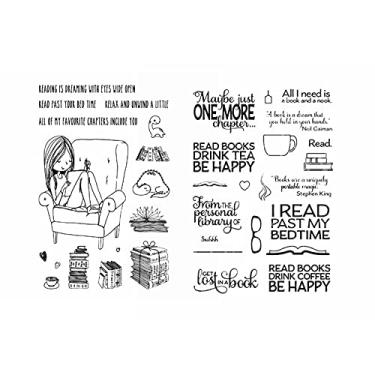 READING IS DREAMING WITH EYES WIDE OPEN
READ PAST YOUR BED TIME
RELAX AND UNWIND A LITTLE
ALL OF MY FAVOURITE CHAPTERS INCLUDE YOU
Maybe just
ONE MORE
chapter...
READ BOOKS
DRINK TEA
BE HAPPY
From the
personal
library of
Shhhh
GET
lost IN A book
All I need is
a book and a nook.
"A book is a dream that
you hold in your hands."
Neil Gaiman
Read.
"Books are a uniquely
portable magic."
Stephen King
I READ
PAST MY
BEDTIME
READ BOOKS
DRINK COFFEE
BE HAPPY